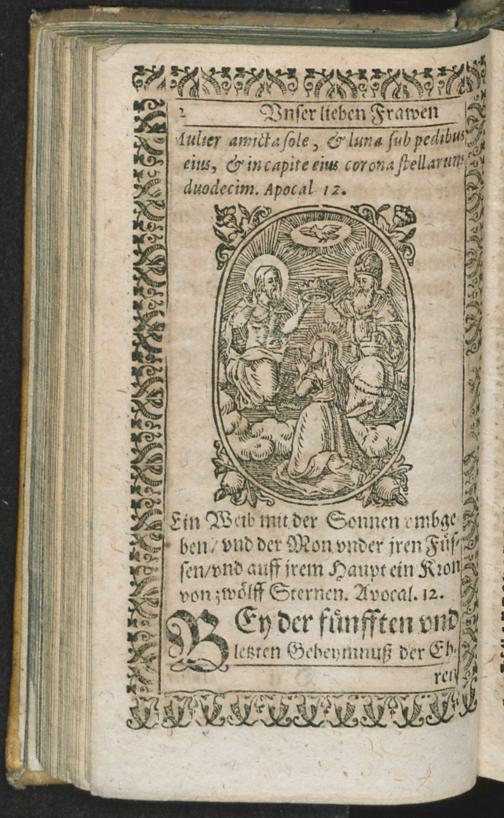 2 Vnser lieben Frawen
Mulier amicta sole, & luna sub pedibus
eius, & in capite eius corona stellarum
duodecim. Apocal 12.
Ein Weib mit der Sonnen vmbge-
ben / vnd der Mon vnder jren Füs-
sen/vnd auff jrem Haupt ein Kron
von zwölff Sternen. Apocal. 12.
BEy der fünfften vnd
letzten Geheymnuß der Eh-
ren